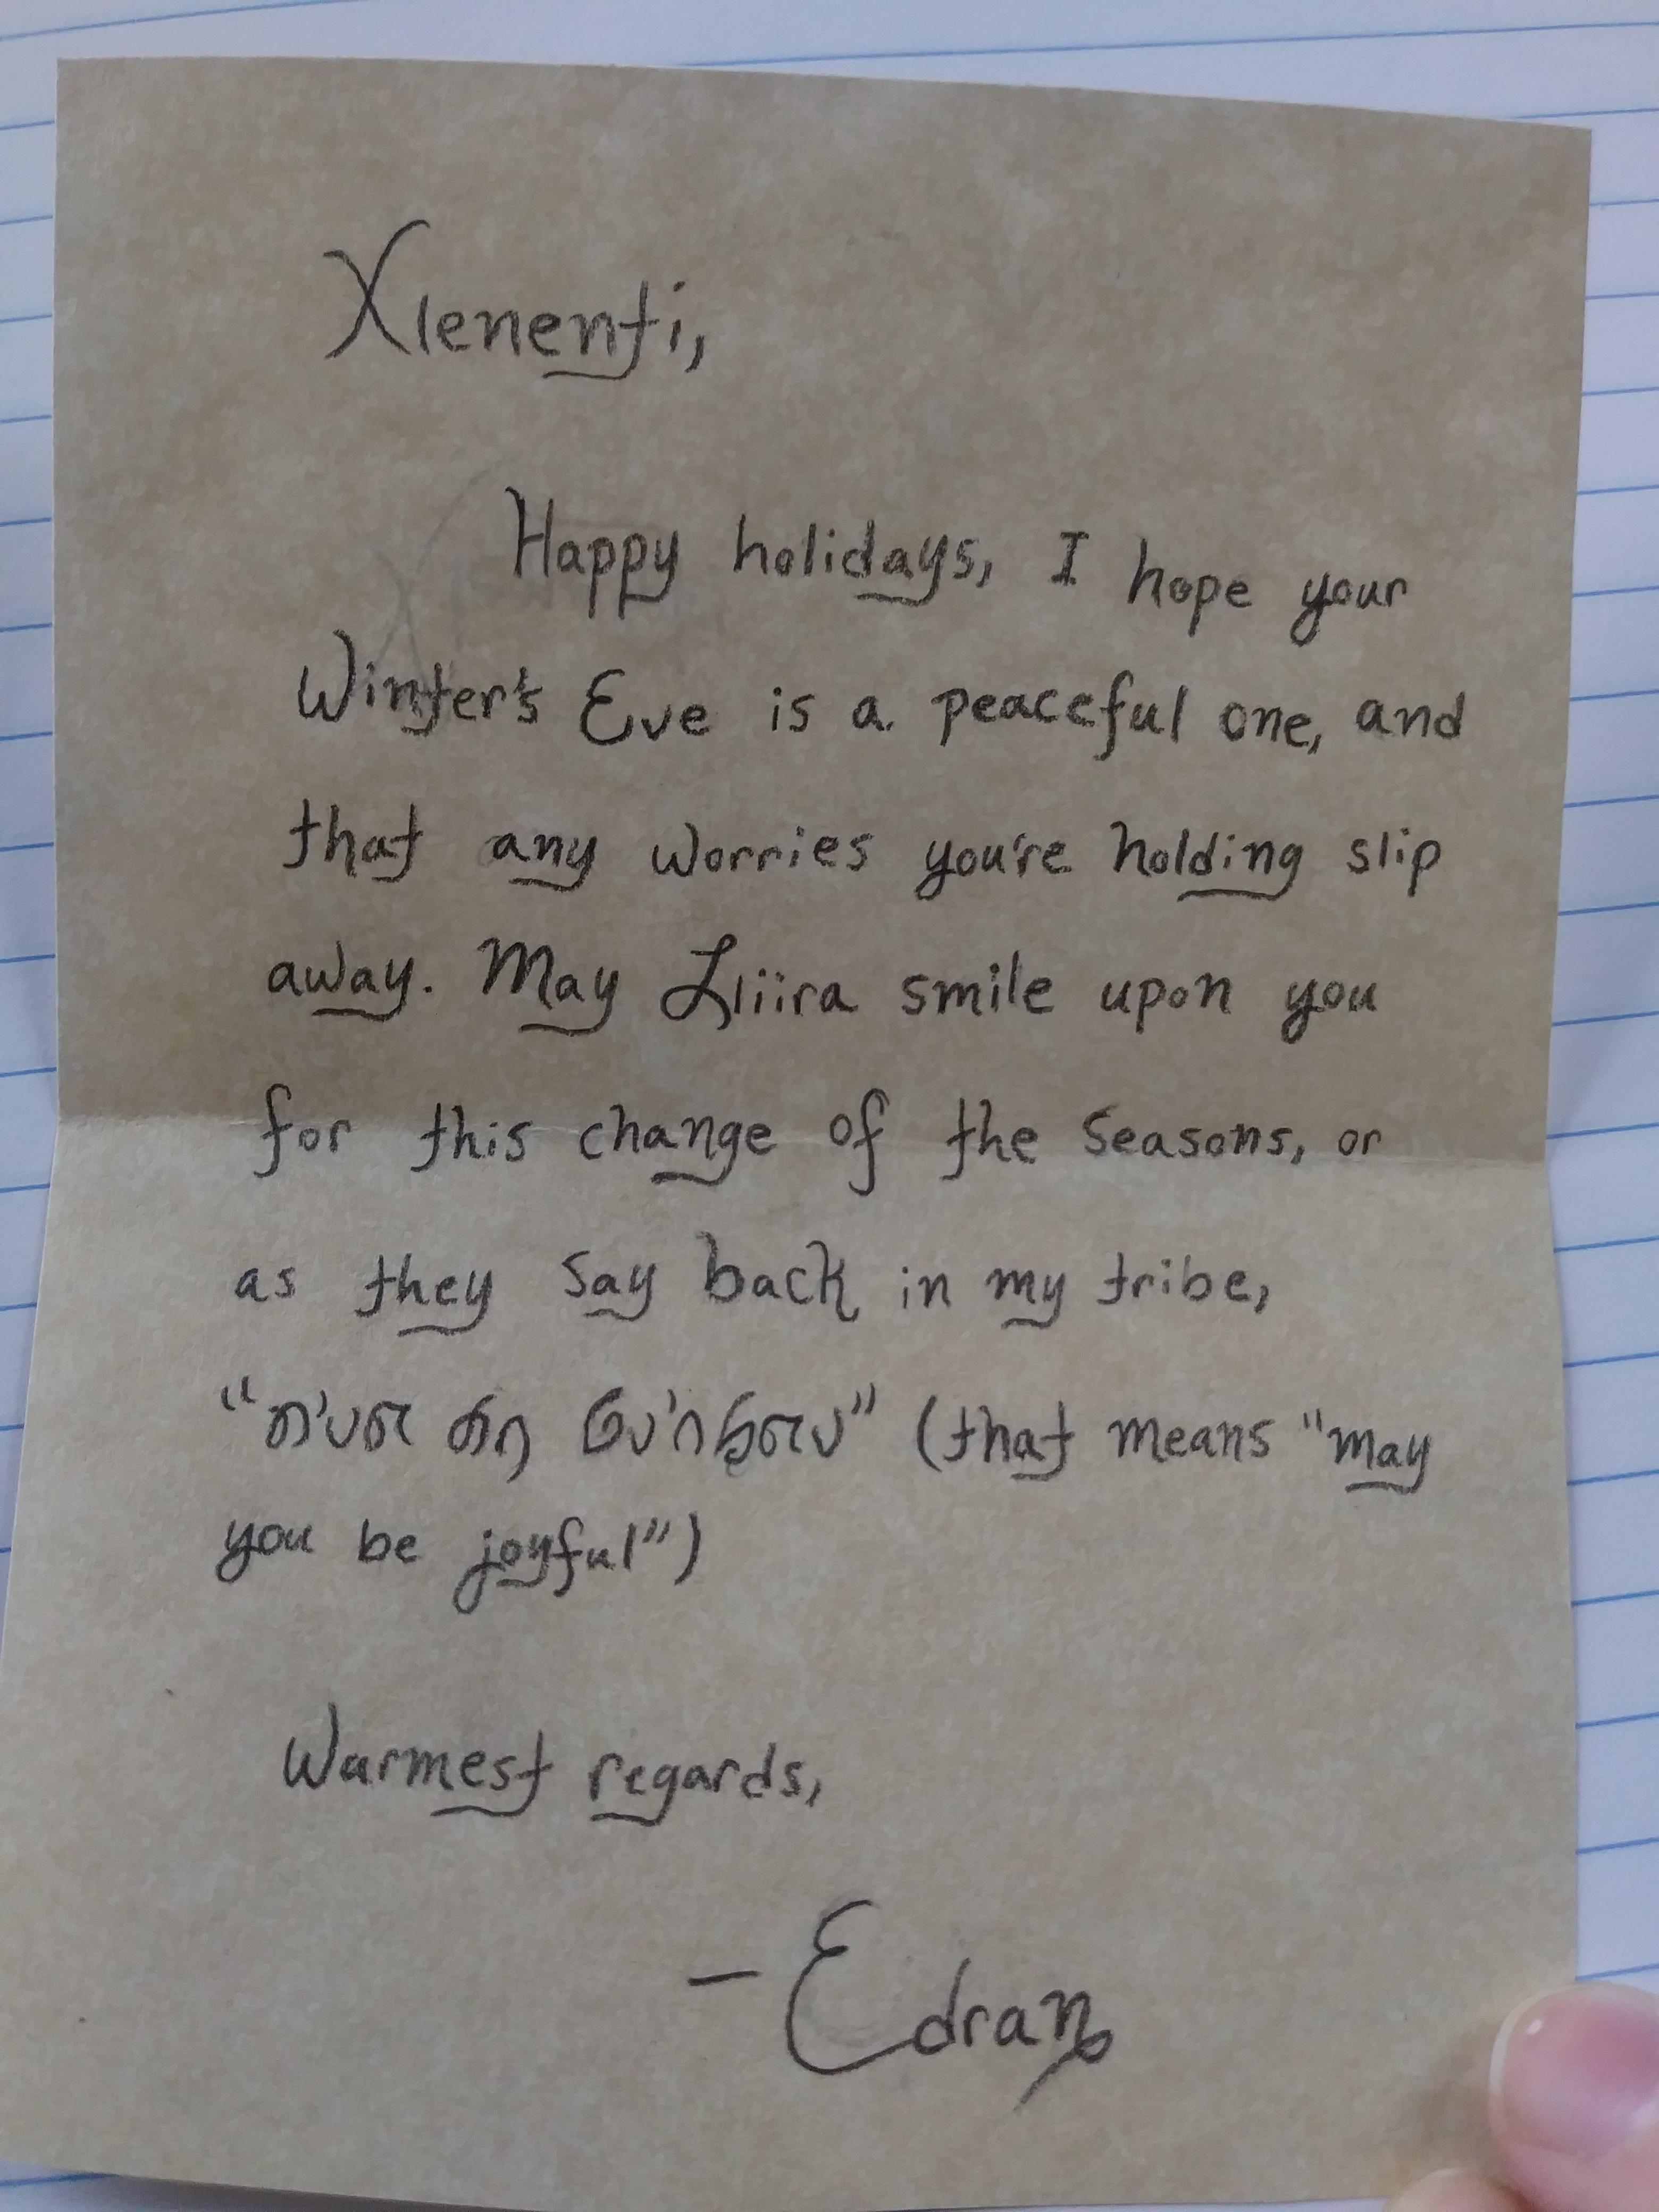 Xlenenti,
Happy holidays, I hope your
Winter's Eve is a peaceful one, and
that any worries you're holding slip
away. May Lliira smile upon you
for this change of the seasons, or
as they say back in my tribe,
(that means "may
you be joyful")
Warmest regards,
- Edran